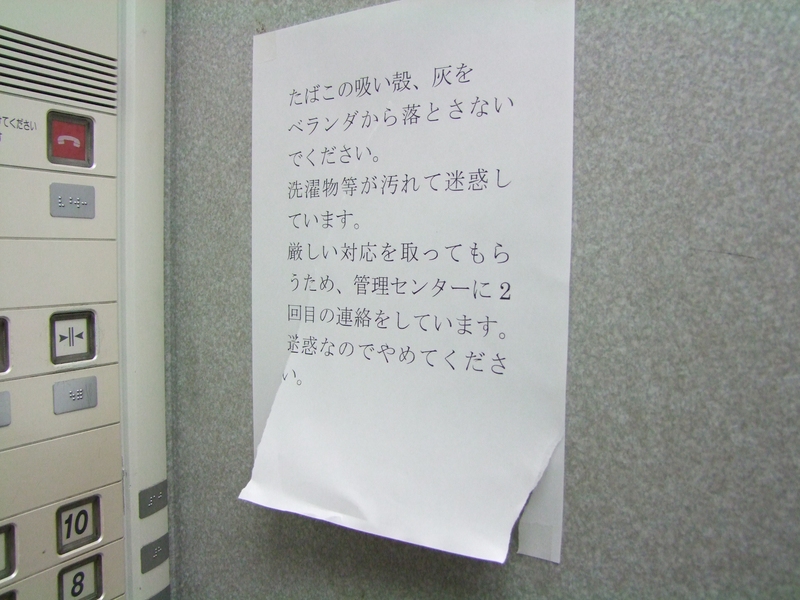 たばこの吸い殻、灰を
ベランダから落とさない
でください。
洗濯物等が汚れて迷惑し
ています。
厳しい対応を取ってもら
うため、管理センターに2
回目の連絡をしています。
迷惑なのでやめてくださ
い。
てください
10
8